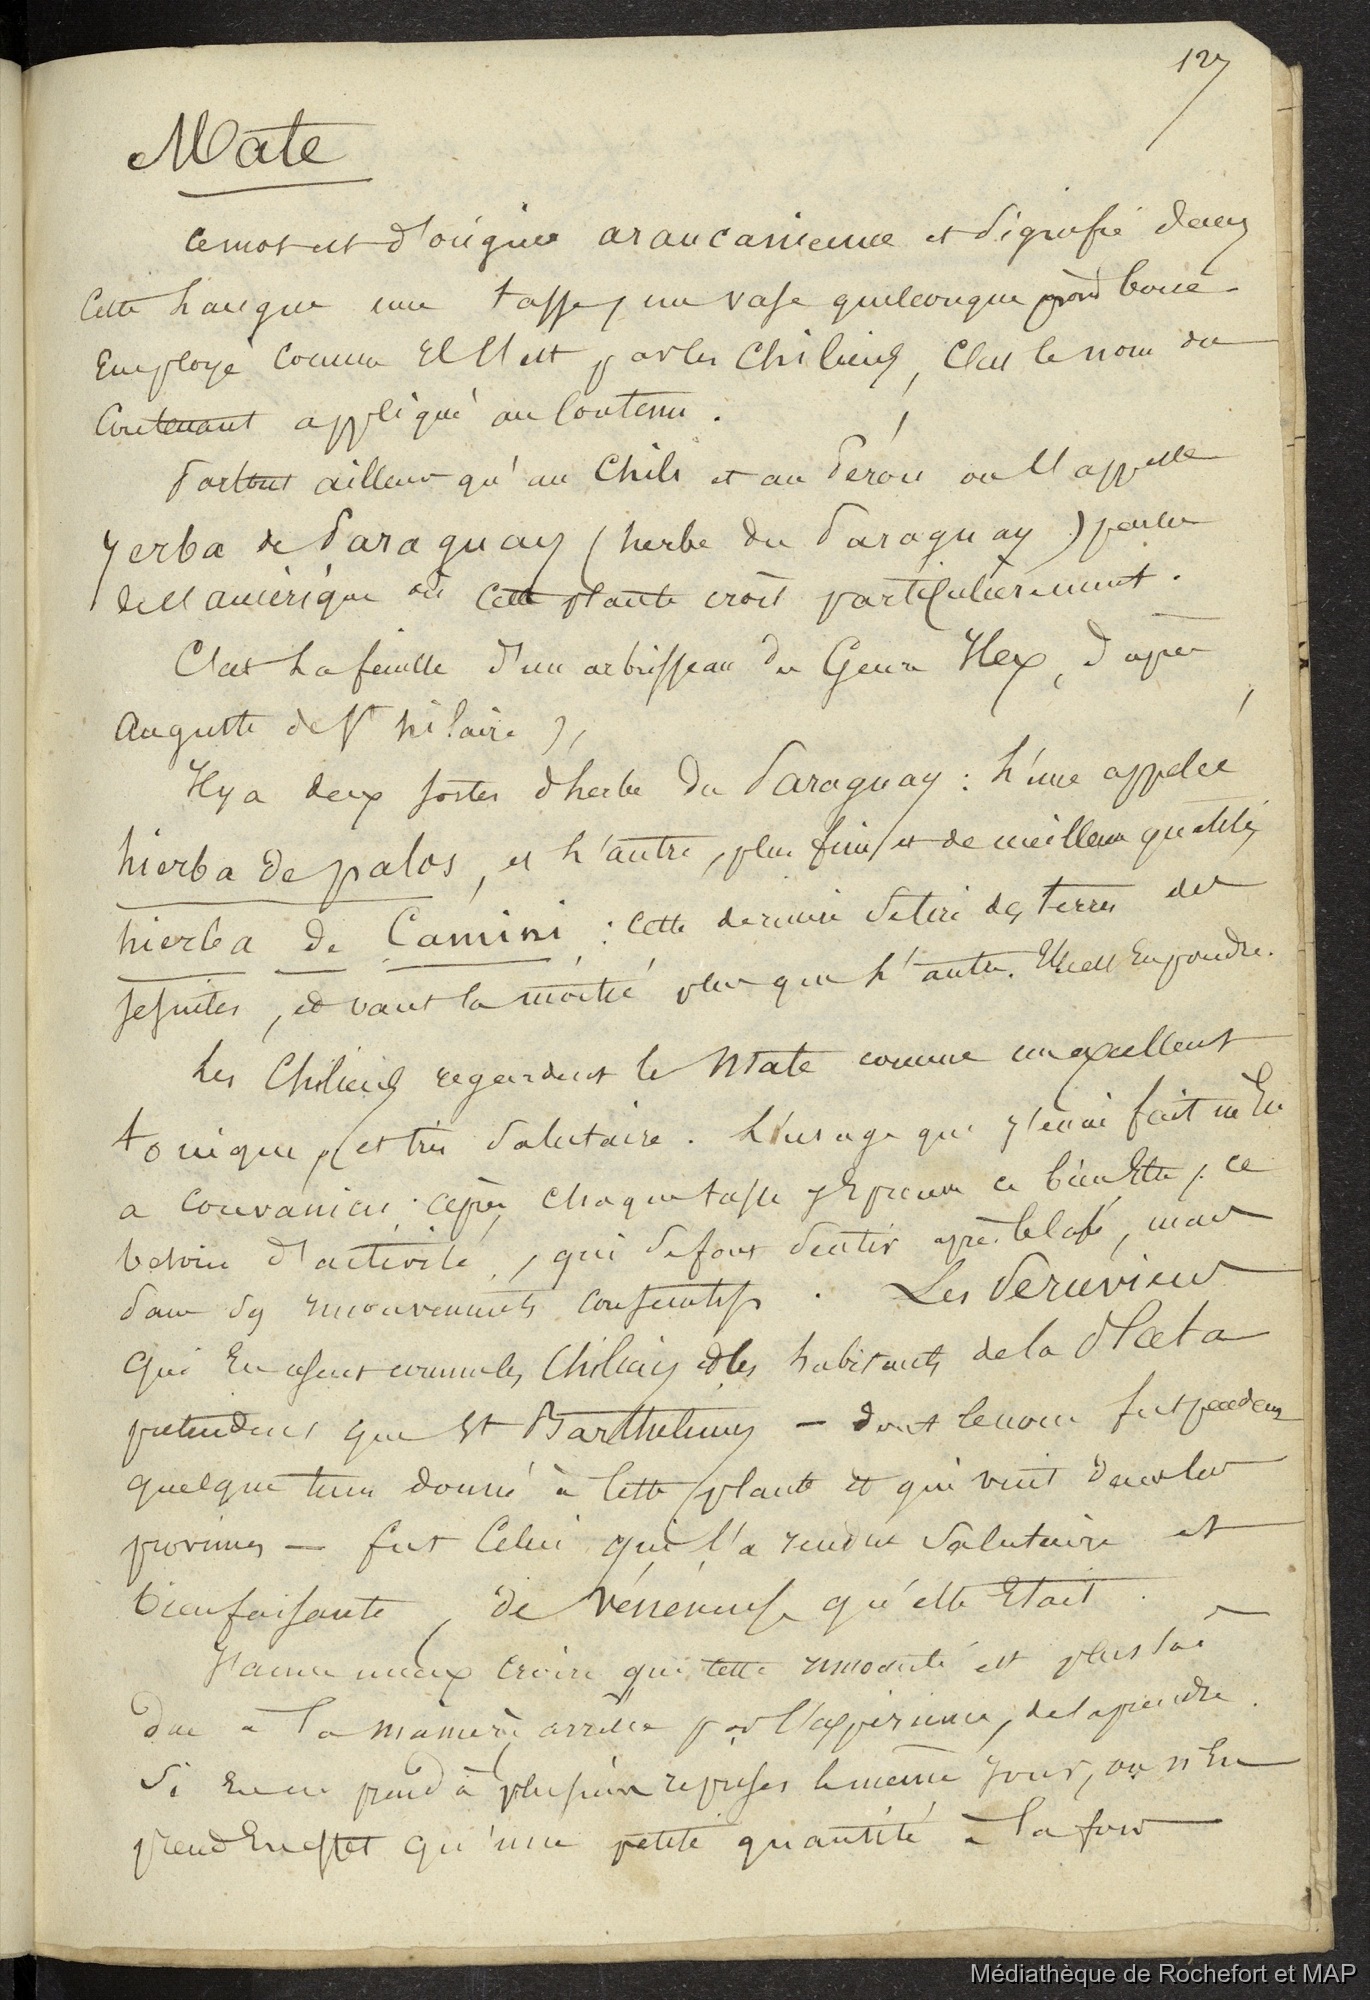 127
Mate
Ce mot est d'origine araucanienne et signifie dans
Cette Langue une tasse, un vase quelconque pour boire.
Employé comme Il l'est par les Chiliens, C'est le nom du
Contenant appliqué au Contenu.
Partout ailleurs qu'au Chili et au Pérou on l'appelle
yerba de Paraguay (herbe du Paraguay)
de l'amérique où Cette plante croît particulièrement.
C'est La feuille d'un arbrisseau du Genre Ilex, d'après
Auguste de St hilaire),
Il y a deux sortes d'herbe du Paraguay : L'une appelée
hierba de palos, et L'autre, plus fine et de meilleure qualité,
hierba de Camini : Cette dernière se tire des terres des
Jésuites, et vaut la moitié plus que L'autre. Elle est En poudre.
Les Chiliens regardent le Mate comme un excellent
tonique, et très Salutaire. L'usage que j'en ai fait m'En
a convaincu : après chaque tasse j'Eprouve ce bien Etre, ce
besoin d'activité, qui se fait sentir après le café, mais
sans ses mouvements convulsifs. Les Péruviens
qui En usent comme les Chiliens et les habitants de la Plata
prétendent que St Barthelemy — dont le nom fut pendant
quelque tems donné à Cette plante et qui vint dans les
provinces — fut Celui qui l'a rendue Salutaire et
bienfaisante, de vénéneuse qu'elle Etait.
J'aime mieux croire que cette
due à la manière par l'expérience, de la prendre.
Si on en prend à plusieurs reprises le même jour, on n'En
prend En effet qu'une petite quantité à la fois
Médiathèque de Rochefort et MAP